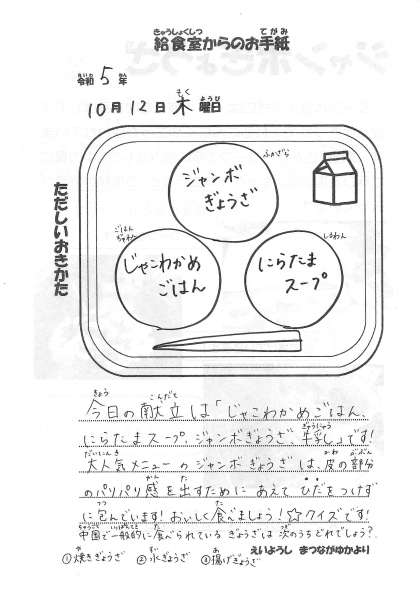 きゅうしょくしつ てがみ
給食室からのお手紙
れいわ ねん
令和 5 年
もく ようび
10月 12日 木 曜日
ただしいおきかた
ふかざら
ジャンボ
ぎょうざ
ごはん
ちゃわん
じゃこわかめ
ごはん
しるわん
にらたま
スープ
きょう こんだて
今日の献立は「じゃこわかめごはん、
ぎゅうにゅう
にらたまスープ、ジャンボぎょうざ、牛乳」です!
だいにんき かわ ぶぶん
大人気メニューのジャンボぎょうざは、皮の部分
かん だ
のパリパリ感を出すために あえて ひだをつけず
つつ た
に包んでいます! おいしく食べましょう! ☆クイズです!
ちゅうごく いっぱんてき た つぎ
中国で一般的に食べられている ぎょうざは 次のうちどれでしょう?
や すい あ
①焼きぎょうざ ②水ぎょうざ ③揚げぎょうざ
えいようし まつながゆかより